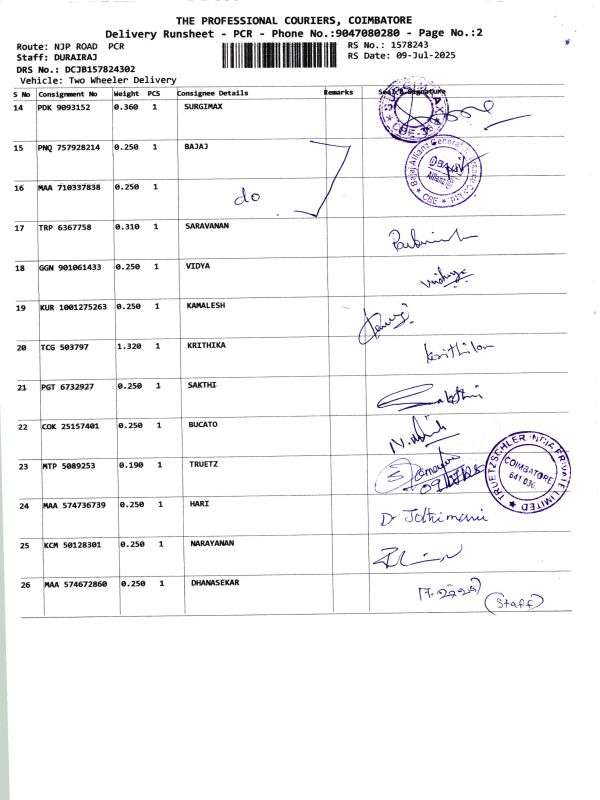 THE PROFESSIONAL COURIERS, COIMBATORE
Delivery Runsheet - PCR - Phone No.:9047080280 - Page No.:2
Route: NJP ROAD PCR
RS No.: 1578243
Staff: DURAIRAJ
RS Date: 09-Jul-2025
DRS No.: DCJB157824302
Vehicle: Two Wheeler Delivery
S No Consignment No Weight PCS Consignee Details Remarks Seal & Signature
14 PDK 9093152 0.360 1 SURGIMAX
15 PNQ 757928214 0.250 1 BAJAJ
16 MAA 710337838 0.250 1 do
17 TRP 6367758 0.310 1 SARAVANAN
18 GGN 901061433 0.250 1 VIDYA
19 KUR 1001275263 0.250 1 KAMALESH
20 TCG 503797 1.320 1 KRITHIKA
21 PGT 6732927 0.250 1 SAKTHI
22 COK 25157401 0.250 1 BUCATO
23 MTP 5089253 0.190 1 TRUETZ
TRUETZSCHLER INDIA PRIVATE LIMITED
COIMBATORE
641 036
24 MAA 574736739 0.250 1 HARI D Jothimani
25 KCM 50128301 0.250 1 NARAYANAN
26 MAA 574672860 0.250 1 DHANASEKAR
(Staff)